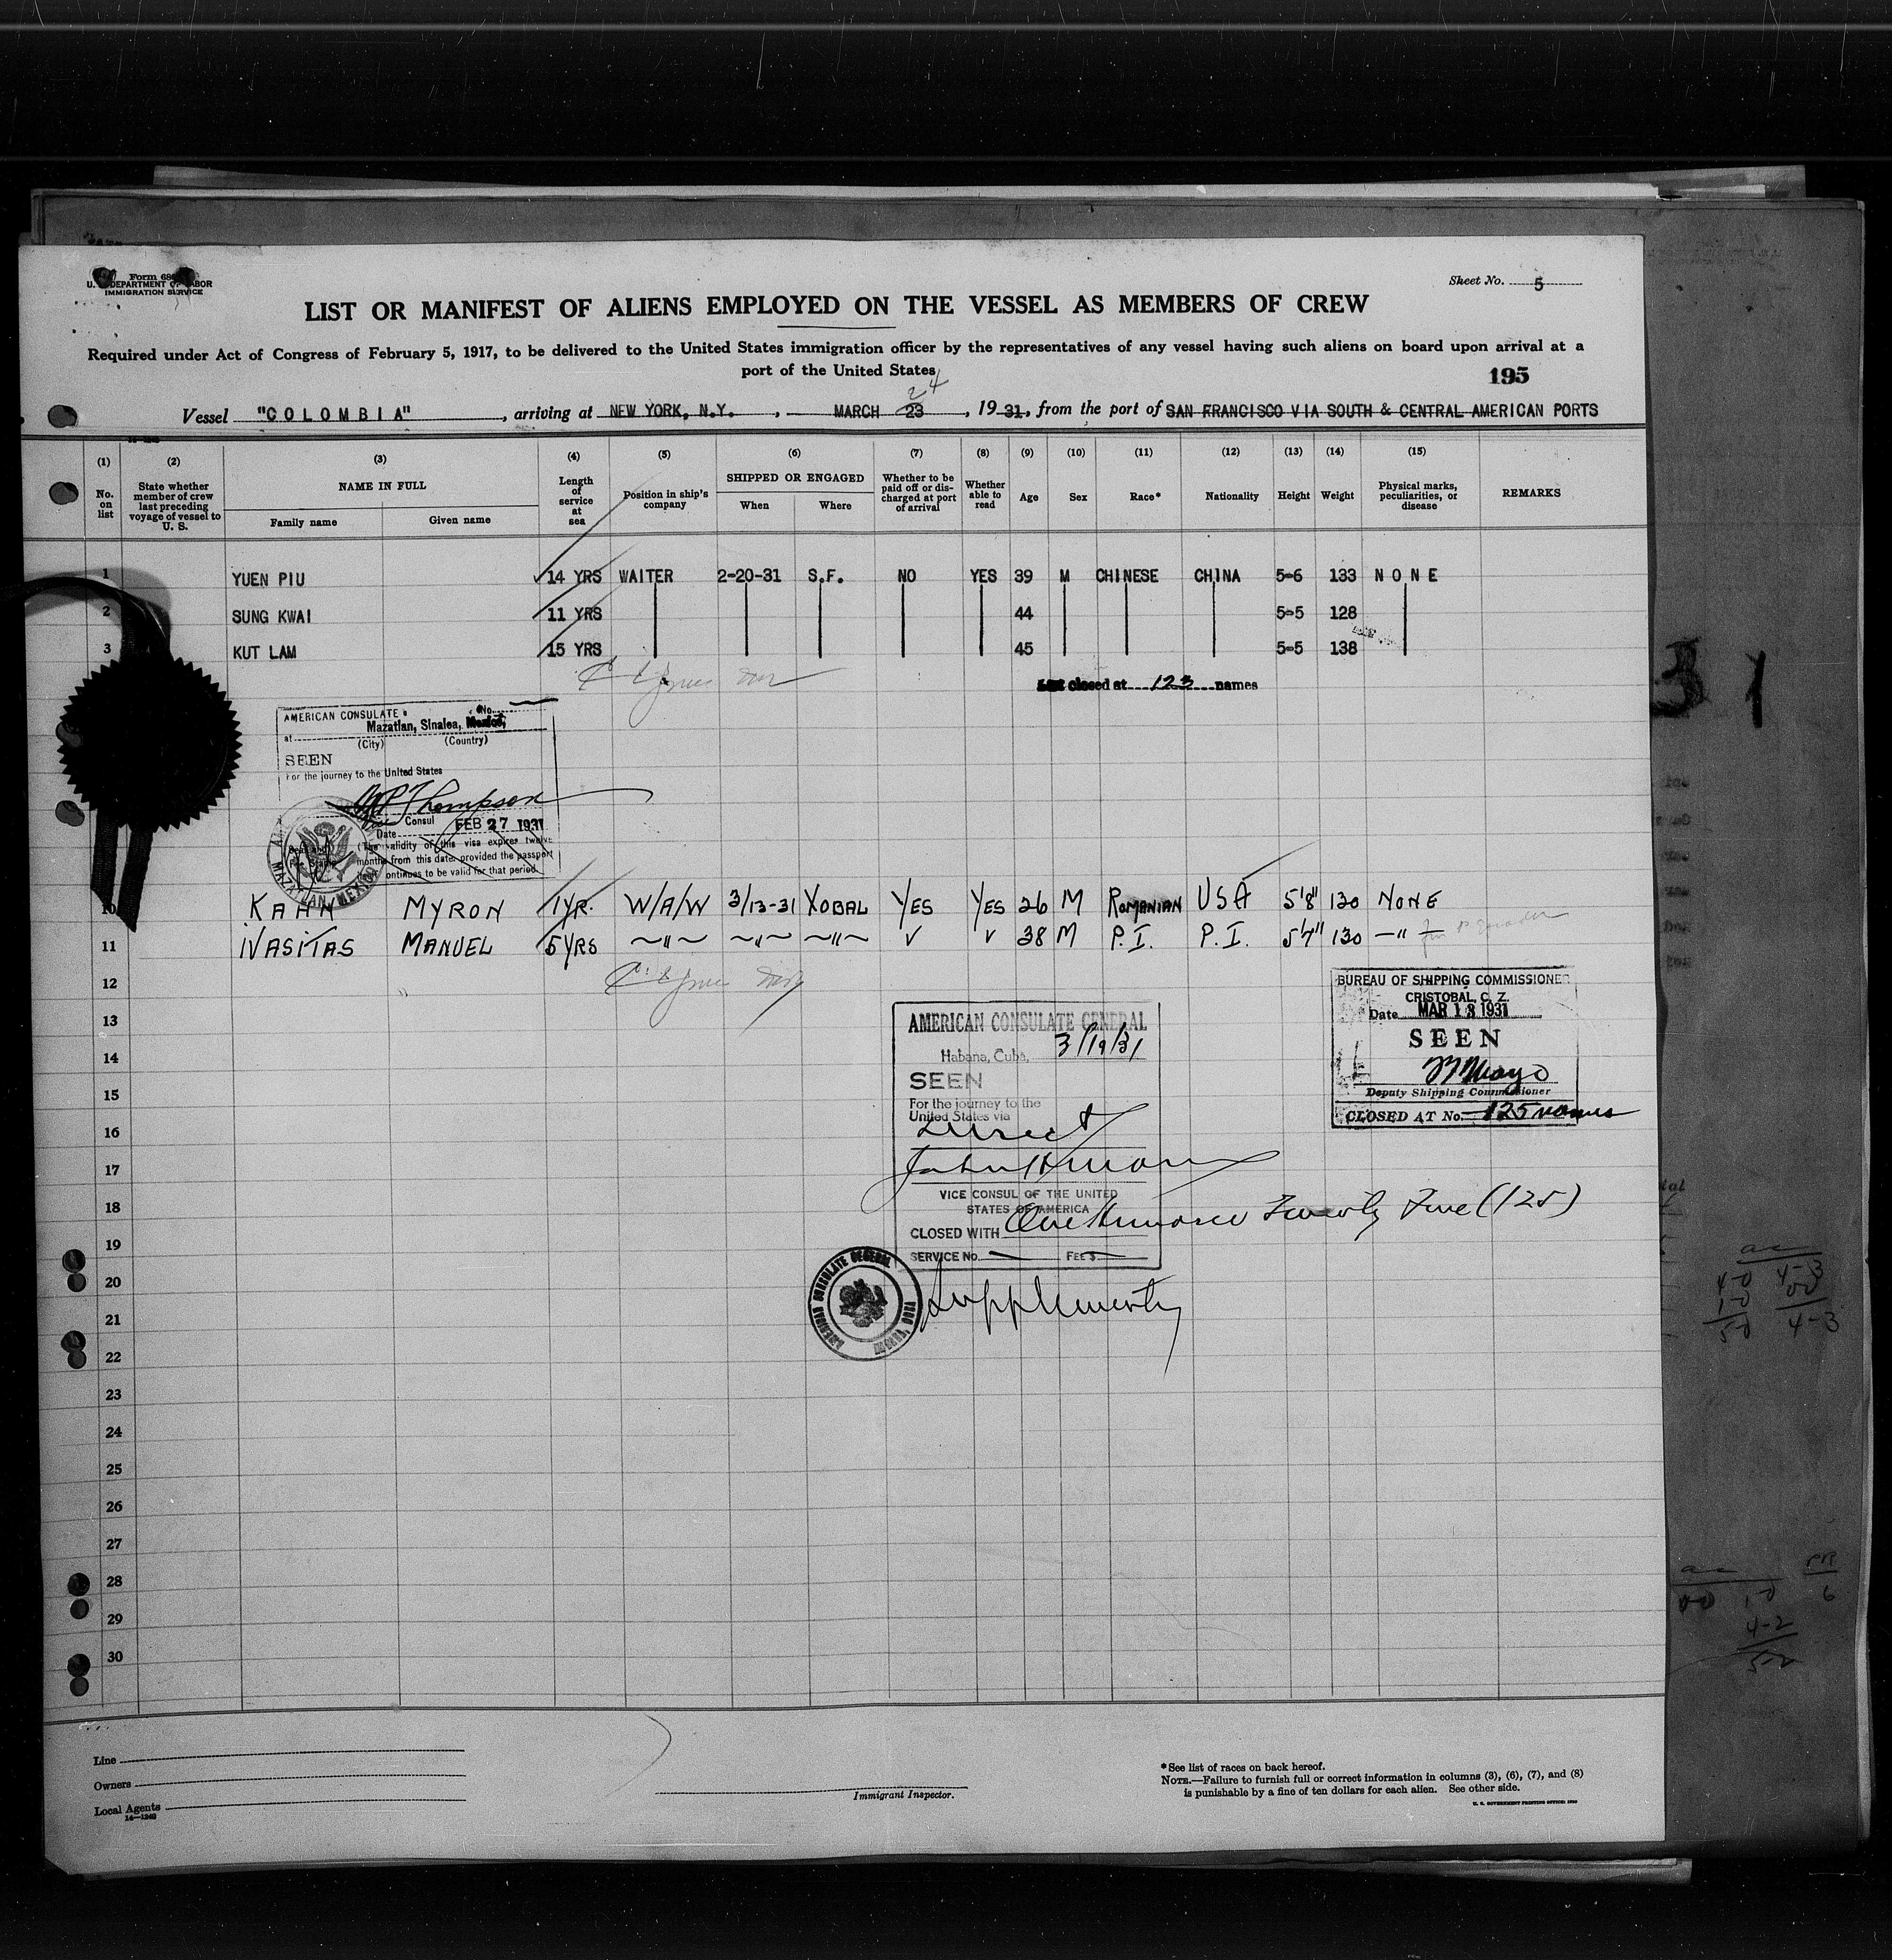 Form 68
U. S. DEPARTMENT OF LABOR
IMMIGRATION SERVICE
Sheet No. 5
LIST OR MANIFEST OF ALIENS EMPLOYED ON THE VESSEL AS MEMBERS OF CREW
Required under Act of Congress of February 5, 1917, to be delivered to the United States immigration officer by the representatives of any vessel having such aliens on board upon arrival at a
port of the United States
195
24
Vessel "COLOMBIA", arriving at NEW YORK, N.Y., MARCH 23, 1931, from the port of SAN FRANCISCO VIA SOUTH & CENTRAL AMERICAN PORTS
(1) (2) (3) (4) (5) (6) (7) (8) (9) (10) (11) (12) (13) (14) (15)
No. on list
State whether member of crew last preceding voyage of vessel to U. S.
NAME IN FULL
Family name
Given name
Length of service at sea
Position in ship's company
SHIPPED OR ENGAGED
When
Where
Whether to be paid off or discharged at port of arrival
Whether able to read
Age
Sex
Race*
Nationality
Height
Weight
Physical marks, peculiarities, or disease
REMARKS
1 YUEN PIU 14 YRS WAITER 2-20-31 S.F. NO YES 39 M CHINESE CHINA 5-6 133 NONE
2 SUNG KWAI 11 YRS 44 5-5 128
3 KUT LAM 15 YRS 45 5-5 138
closed at 123 names
AMERICAN CONSULATE No.
at Mazatlan, Sinaloa, Mexico,
(City) (Country)
SEEN
For the journey to the United States
Thompson
Consul
Date FEB 27 1931
(The validity of this visa expires twelve
months from this date provided the passport
continues to be valid for that period.
MAZATLAN, MEXICO
10 KAHN MYRON 1 YR. W/A/W 3/13-31 XOBAL YES YES 26 M ROMANIAN USA 5'8" 130 NONE
11 IVASITAS MANUEL 5 YRS " " " ✓ ✓ 38 M P.I. P.I. 5'4" 130 "
12
13
14
15
16
17
18
19
20
21
22
23
24
25
26
27
28
29
30
BUREAU OF SHIPPING COMMISSIONER
CRISTOBAL, C. Z.
Date MAR 13 1931
SEEN
Mayo
Deputy Shipping Commissioner
CLOSED AT No. 125 names
AMERICAN CONSULATE GENERAL
Habana, Cuba, 3/19/31
SEEN
For the journey to the
United States via
Direct
VICE CONSUL OF THE UNITED
STATES OF AMERICA
CLOSED WITH One Hundred Twenty Five (125)
SERVICE No. FEE $
AMERICAN CONSULATE GENERAL
HABANA, CUBA
31
ac
4-0 4-3
4-3
ac
4-2
5-2
6
Line
Owners
Local Agents
14—1240
Immigrant Inspector.
*See list of races on back hereof.
NOTE.—Failure to furnish full or correct information in columns (3), (6), (7), and (8)
is punishable by a fine of ten dollars for each alien. See other side.
U. S. GOVERNMENT PRINTING OFFICE